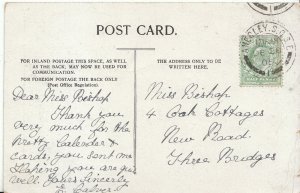 POST CARD.
FOR INLAND POSTAGE THIS SPACE, AS WELL
AS THE BACK, MAY NOW BE USED FOR
COMMUNICATION.
FOR FOREIGN POSTAGE THE BACK ONLY
(Post Office Regulation).
THE ADDRESS ONLY TO BE
WRITTEN HERE.
Dear Miss Bishop
Thank you
very much for the
Pretty Calender &
cards, you sent me
Hoping you are quite
well Yours Sincerely
Miss Bishop
4 Oak Cottages
New Road
Three Bridges